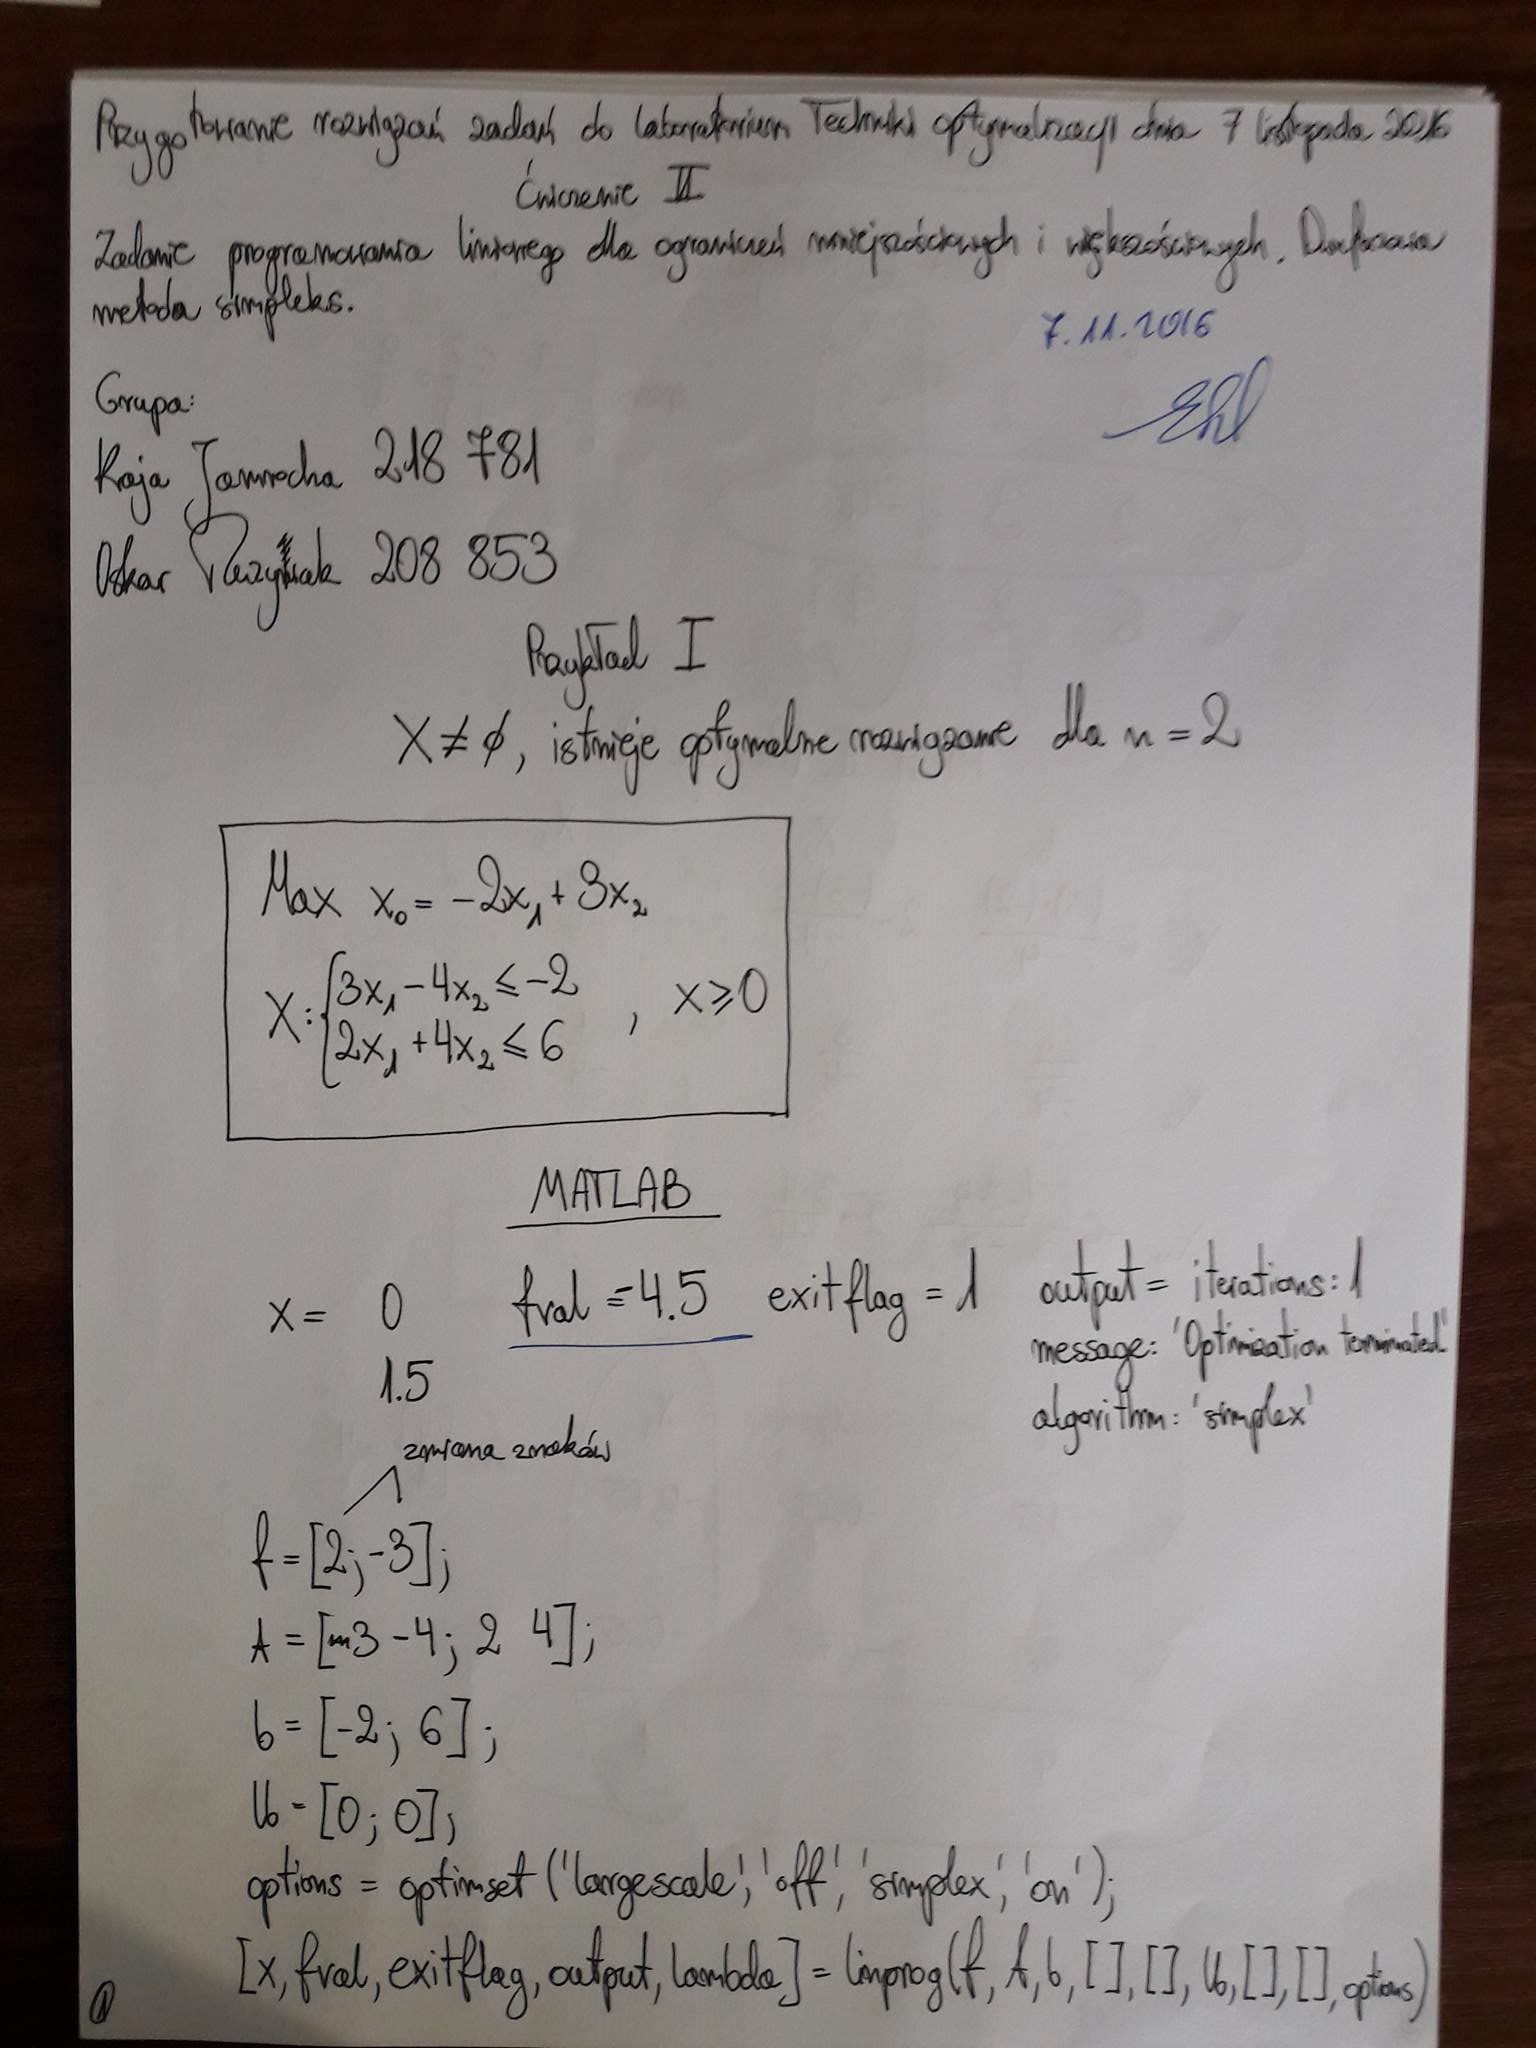 Przygotowanie rozwiązań zadań do laboratorium Techniki optymalizacji dnia 7 listopada 2016
Ćwiczenie II
Zadanie programowania liniowego dla ograniczeń mniejszościowych i większościowych. Dwufazowa
metoda simpleks.
7.11.2016
Grupa:
Kaja Jamrocha 218 781
Oskar 208 853
Przykład I
X ≠ ∅, istnieje optymalne rozwiązanie dla n = 2
Max x₀ = -2x₁ + 3x₂
X: { 3x₁ - 4x₂ ≤ -2
2x₁ + 4x₂ ≤ 6 , x ≥ 0
MATLAB
x = 0 fval = -4.5 exitflag = 1 output = iterations: 1
1.5 message: 'Optimization terminated'
algorithm: 'simplex'
zmiana znaków
f = [2; -3];
A = [3 -4; 2 4];
b = [-2; 6];
lb = [0; 0];
options = optimset('largescale', 'off', 'simplex', 'on');
[x, fval, exitflag, output, lambda] = linprog(f, A, b, [], [], lb, [], [], options)
1